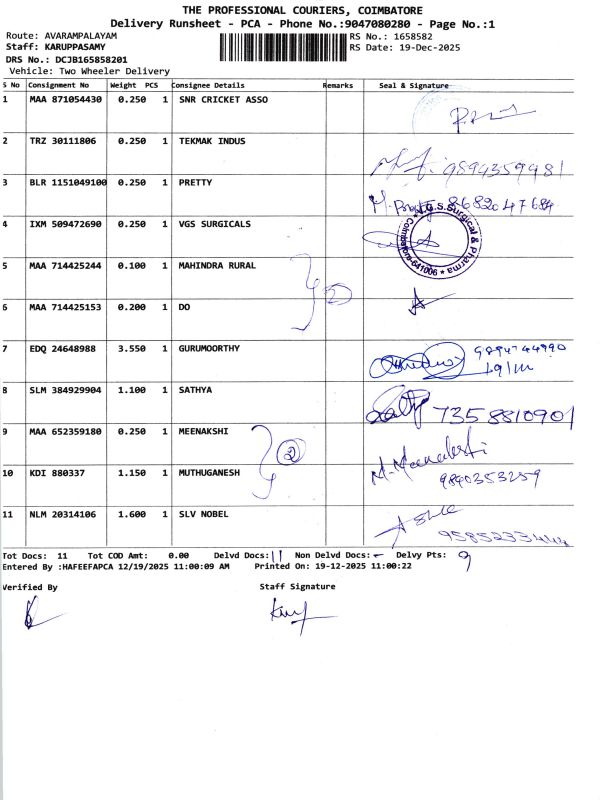 THE PROFESSIONAL COURIERS, COIMBATORE
Delivery Runsheet - PCA - Phone No.:9047080280 - Page No.:1
Route: AVARAMPALAYAM RS No.: 1658582
Staff: KARUPPASAMY RS Date: 19-Dec-2025
DRS No.: DCJB165858201
Vehicle: Two Wheeler Delivery
S No Consignment No Weight PCS Consignee Details Remarks Seal & Signature
1 MAA 871054430 0.250 1 SNR CRICKET ASSO
2 TRZ 30111806 0.250 1 TEKMAK INDUS 9894359481
3 BLR 1151049100 0.250 1 PRETTY 8682047684
4 IXM 509472690 0.250 1 VGS SURGICALS V.G.S. Surgical & Pharma Coimbatore-641006
5 MAA 714425244 0.100 1 MAHINDRA RURAL 2
6 MAA 714425153 0.200 1 DO
7 EDQ 24648988 3.550 1 GURUMOORTHY
8 SLM 384929904 1.100 1 SATHYA 7358810901
9 MAA 652359180 0.250 1 MEENAKSHI 2 M. Meenakshi
10 KDI 880337 1.150 1 MUTHUGANESH 9890353259
11 NLM 20314106 1.600 1 SLV NOBEL
Tot Docs: 11 Tot COD Amt: 0.00 Delvd Docs: 11 Non Delvd Docs: - Delvy Pts: 9
Entered By :HAFEEFAPCA 12/19/2025 11:00:09 AM Printed On: 19-12-2025 11:00:22
Verified By Staff Signature